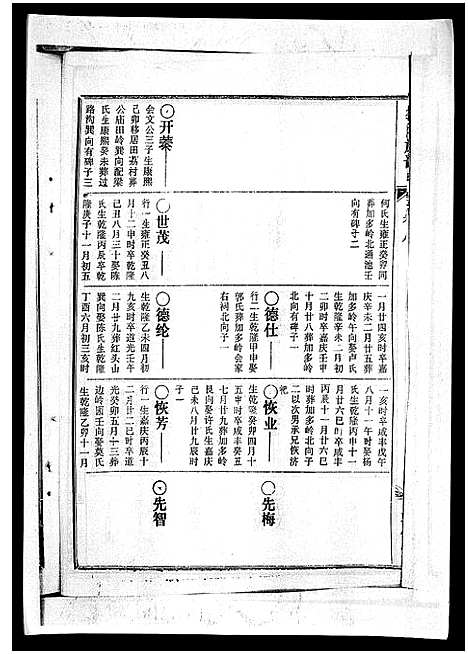 何氏生雍正癸卯河
葬加多岭北通池壬
向有碑子二
〇开蓁
会文公三子生康熙
己卯移居田荔村葬
公庙田岭巽向配梁
氏生康熙癸未葬过
路沟巽向有碑子三
〇世茂
行一生雍正癸丑八
月十二申时卒乾隆
己丑八月三十娶陈
氏生乾隆丙辰卒乾
隆庚子十一月初五
一月廿四亥时卒嘉
庆辛未二月廿五葬
加多岭午向娶卢氏
生乾隆辛未二月初
二卯时卒嘉庆壬申
十月廿八葬加多岭
北向有碑子一
〇德仕
行二生乾隆甲申娶
郭氏葬加多岭会家
右祠北向子一
〇德纶
生乾隆乙未四月初
九亥时卒道光壬午
二月廿九葬红头山
巽向娶陈氏生乾隆
丁酉六月初三亥时
一亥时卒咸丰戊午
八月十一午时娶杨
氏生乾隆丙申十一
月廿六巳时卒咸丰
丙辰十一月廿六巳
时葬加多岭北向子
二以次男承兄恢济
祀
〇恢业
生乾隆癸卯四月十
五申时卒咸丰癸丑
七月廿九葬加多岭
艮向娶许氏生嘉庆
己未八月廿九辰时
子一
〇恢芳
行一生嘉庆丙辰十
月廿二巳时卒道
光癸卯五月十三葬
边岭园壬向娶莫氏
生乾隆乙卯十一月
〇先梅
〇先智